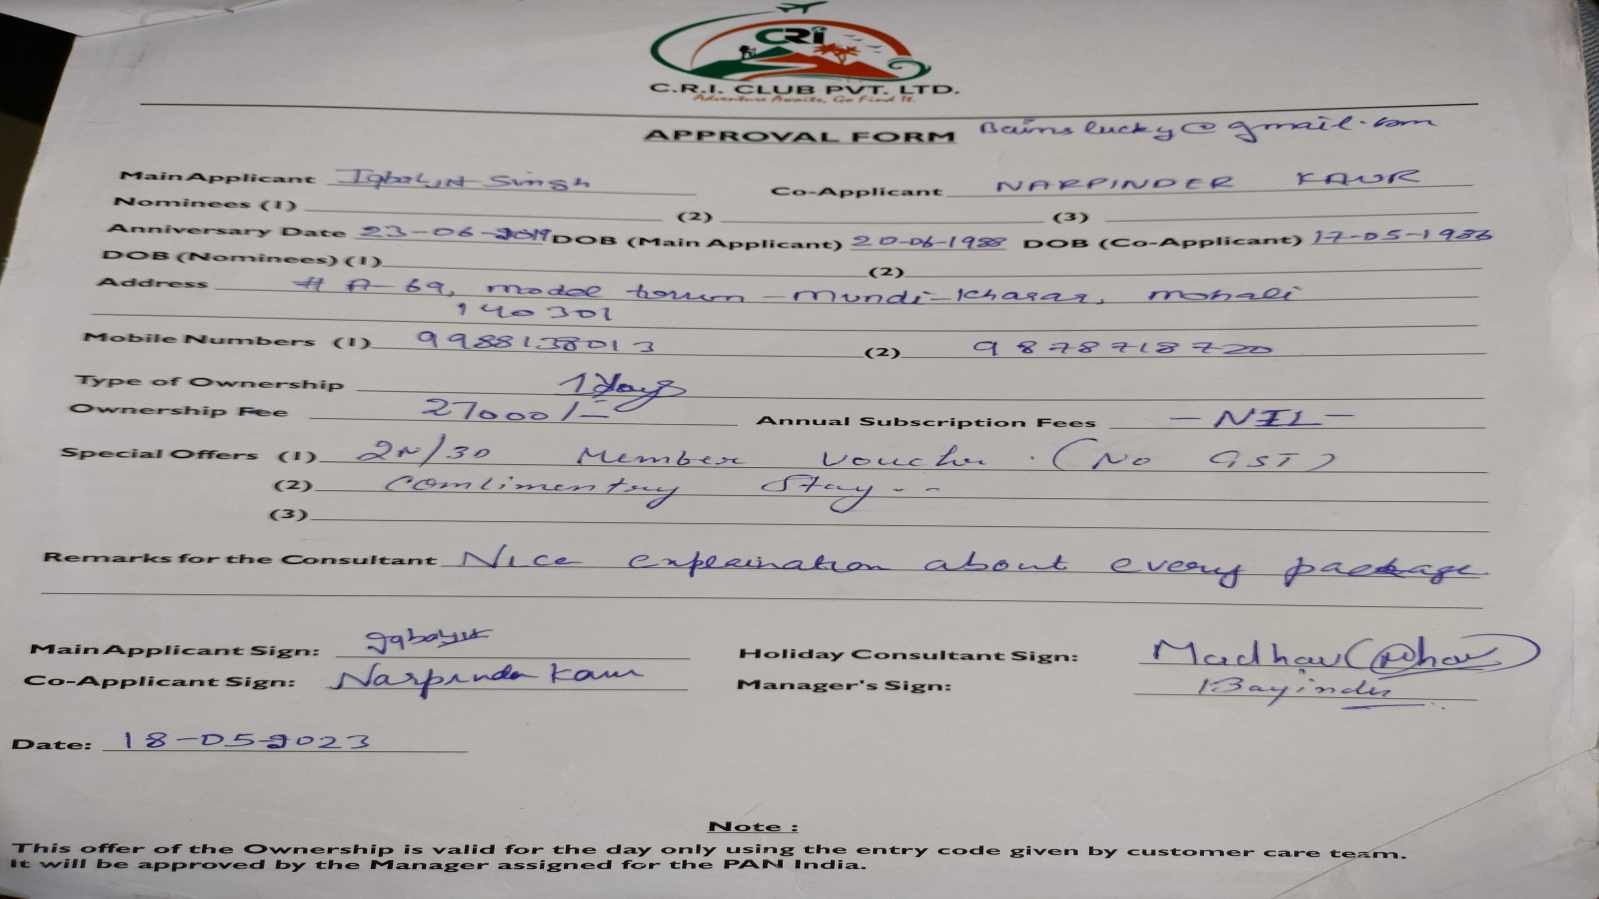 CRi
C.R.I. CLUB PVT. LTD.
Adventure Awaits, Go Find It.
APPROVAL FORM Bainslucky@gmail.com
Main Applicant Iqbaljit Singh Co-Applicant NARPINDER KAUR
Nominees (1) (2) (3)
Anniversary Date 23-06-2019 DOB (Main Applicant) 20-06-1988 DOB (Co-Applicant) 17-05-1986
DOB (Nominees) (1) (2)
Address # A-69, model town-mundi-kharar, mohali
140301
Mobile Numbers (1) 9988138013 (2) 9878718720
Type of Ownership 1
Ownership Fee 27000/- Annual Subscription Fees -NIL-
Special Offers (1) 2N/3D Member Voucher. (No GST)
(2) Comlimentry Stay..
(3)
Remarks for the Consultant Nice explaination about every package
Main Applicant Sign: Iqbaljit Holiday Consultant Sign: Madhav
Co-Applicant Sign: Narpinder Kaur Manager's Sign:
Date: 18-05-2023
Note :
This offer of the Ownership is valid for the day only using the entry code given by customer care team.
It will be approved by the Manager assigned for the PAN India.